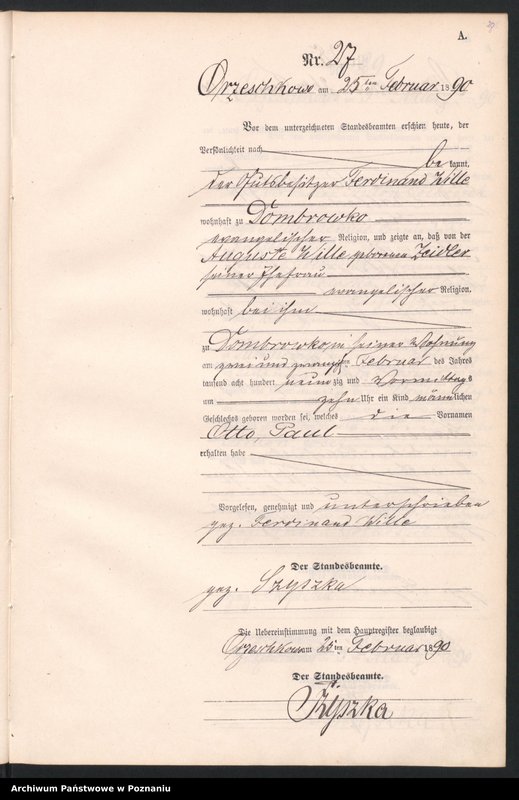 A.
Nr. 27
Orzeschkowo am 25ten Februar 1890
Vor dem unterzeichneten Standesbeamten erschien heute, der
Persönlichkeit nach
be kannt,
der Gutsbesitzer Ferdinand Wille
wohnhaft zu Dombrowko
evangelischer Religion, und zeigte an, daß von der
Auguste Wille geborenen Zeidler
seiner Ehefrau
evangelischer Religion,
wohnhaft bei ihm
zu Dombrowko in seiner Wohnung
am zwei und zwanzigsten Februar des Jahres
tausend acht hundert neunzig und Vormittags
um zehn Uhr ein Kind männlichen
Geschlechts geboren worden sei, welches die Vornamen
Otto, Paul
erhalten habe
Vorgelesen, genehmigt und unterschrieben
gez. Ferdinand Wille
Der Standesbeamte.
gez. Szyszka
Die Uebereinstimmung mit dem Hauptregister beglaubigt
Orzeschkowo am 25ten Februar 1890
Der Standesbeamte.
Szyszka
Archiwum Państwowe w Poznaniu